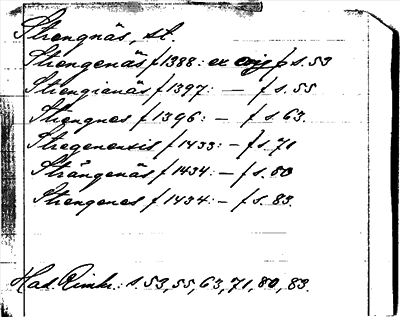 Strengnäs, st.
Strengenäs f 1388: ex f s. 53
Strengianäs f 1397: — f s. 55
Strengnes f 1396: — f s. 63.
Stregenensis f 1433: — f s. 71
Strängenäs f 1434: — f s. 80
Strengenes f 1434: — f s. 83.
Had. Rimkr.: s. 53, 55, 63, 71, 80, 83.